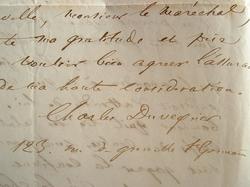 ville, monsieur le maréchal
te ma gratitude et prie
vouloir bien agréer l'assuran
de ma haute considération.
Charles Duveyrier
123, r. de grenelle St Germain